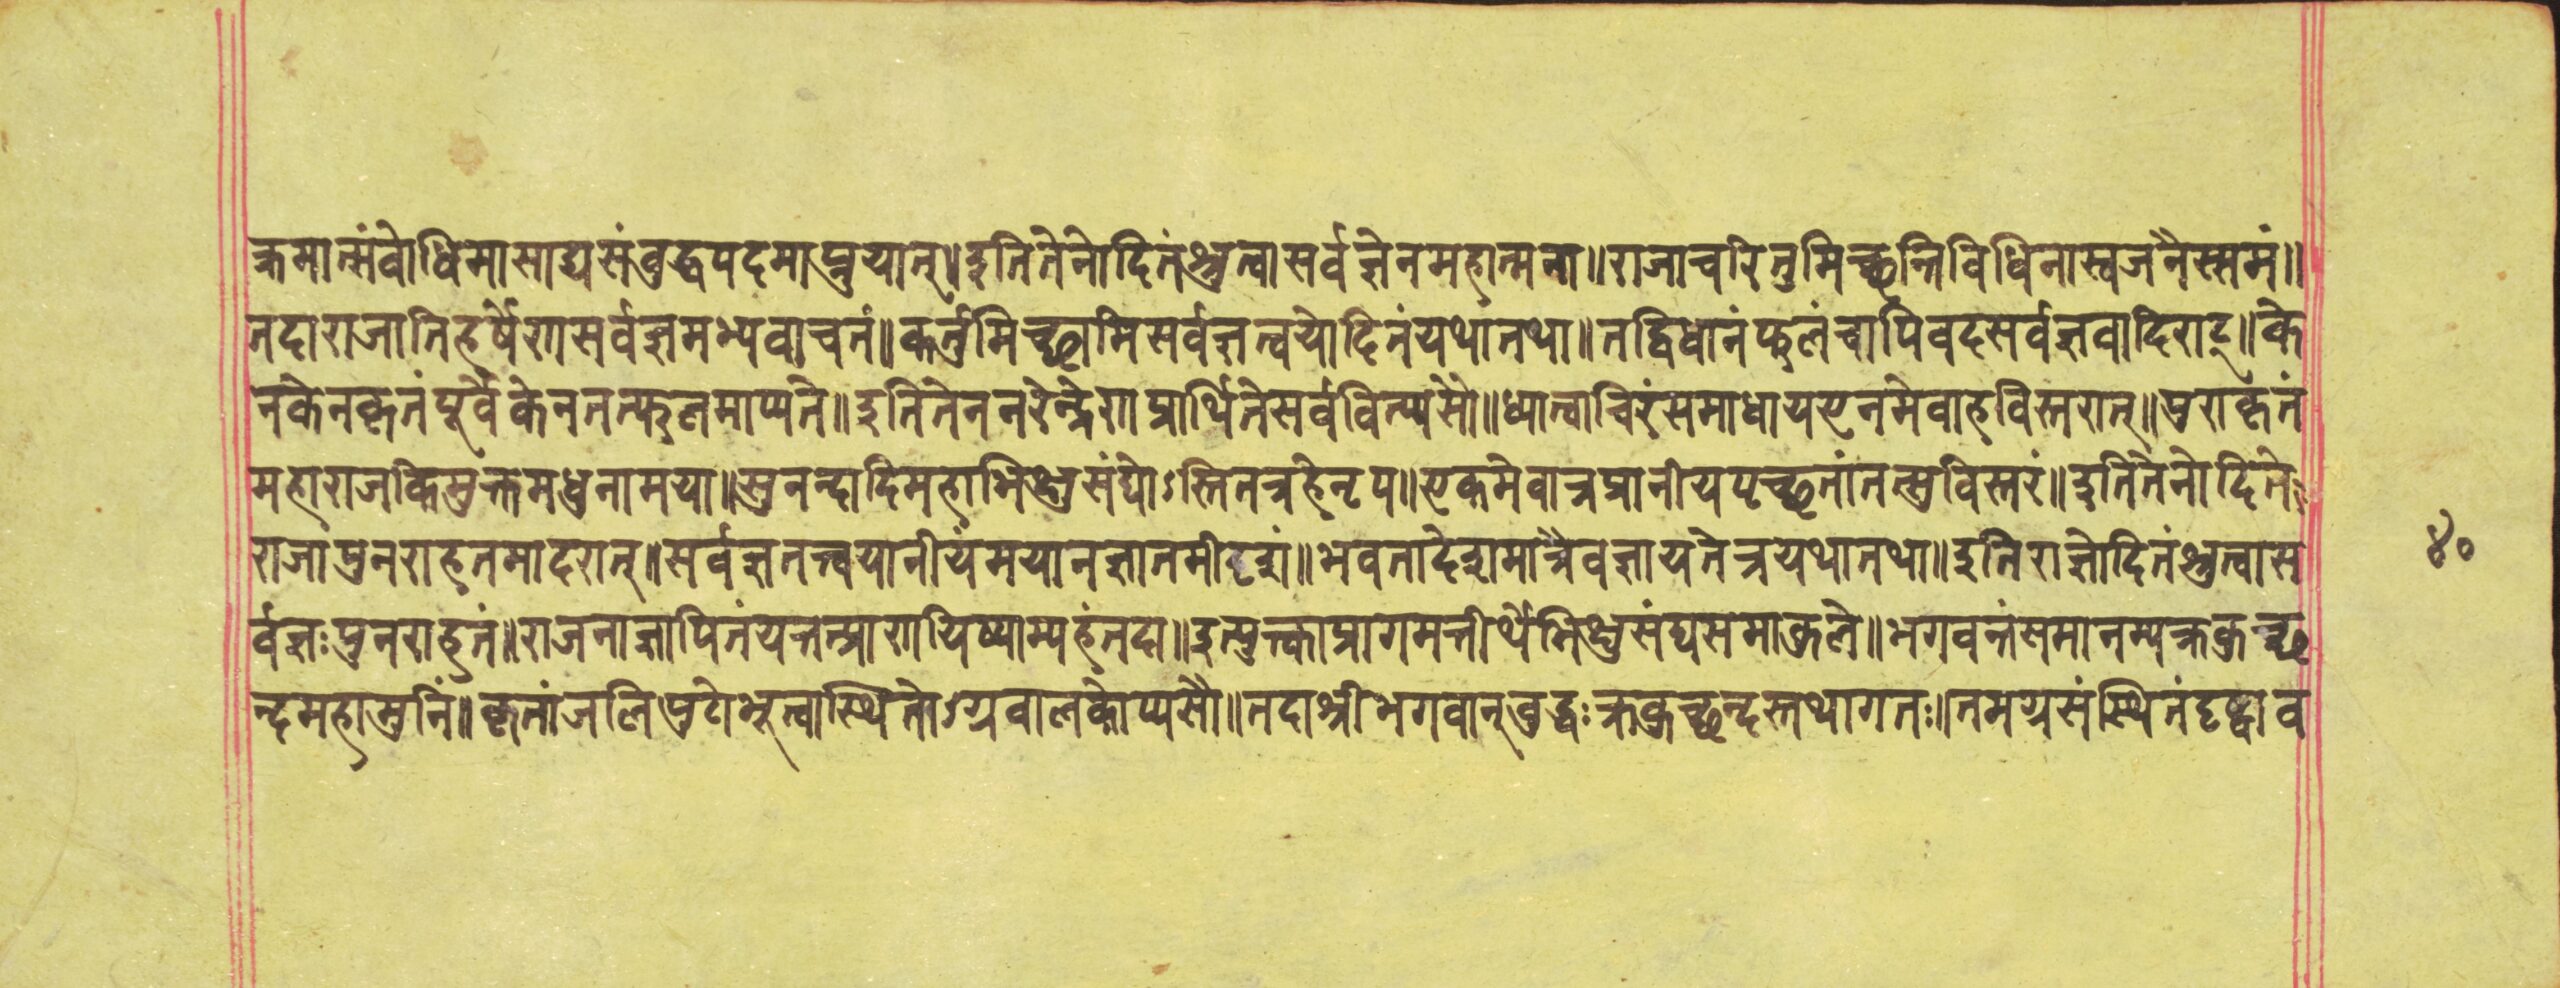 क्रमात्संबोधिमासाद्यसंबुद्धपदमाप्नुयात्॥इतितेनोदितंश्रुत्वासर्वज्ञेनमहात्मना॥राजाचरितुमिच्छन्तिविधिनास्वजनैस्समं॥
तदाराजातिहर्षेणसर्वज्ञमभ्यवाचतं॥कर्तुमिच्छामिसर्वज्ञत्वयोदितंयथातथा॥तद्विधानंफलंचापिवदसर्वज्ञवादिराट्॥के
नकेनकृतंपूर्वेकेनतत्फलमाप्यते॥इतितेननरेन्द्रेणप्रार्थितेसर्ववित्प्यसौ॥ध्यात्वाचिरंसमाधायएनमेवाहविस्तरात्॥पुराकृतं
महाराजकिमुक्तमधुनामया॥सुनन्दादिमहाभिक्षुसंघोऽस्तितत्रहेनृप॥एकमेवात्रप्रानीयपृच्छतांतत्सुविस्तरं॥इतितेनोदिते
राजापुनराहतमादरात्॥सर्वज्ञतत्त्वयानीयंमयानज्ञातमीदृशं॥भवतादेशमात्रैवज्ञायतेत्रयथातथा॥इतिराज्ञोदितंश्रुत्वास
र्वज्ञःपुनराहतं॥राजनाज्ञापितंयत्तत्प्राणयिष्याम्यहंतदा॥इत्युक्त्काप्रागमत्तीर्थेभिक्षुसंघसमाकुले॥भगवन्तंसमानम्यक्रकुच्छ
न्दमहामुनिं॥कृतांजलिपुटोभूत्वास्थितोऽग्रवालकोप्यसौ॥तदाश्रीभगवान्बुद्धःक्रकुच्छन्दस्तथागतः॥तमग्रसंस्थितंदृष्ट्वाव
४०